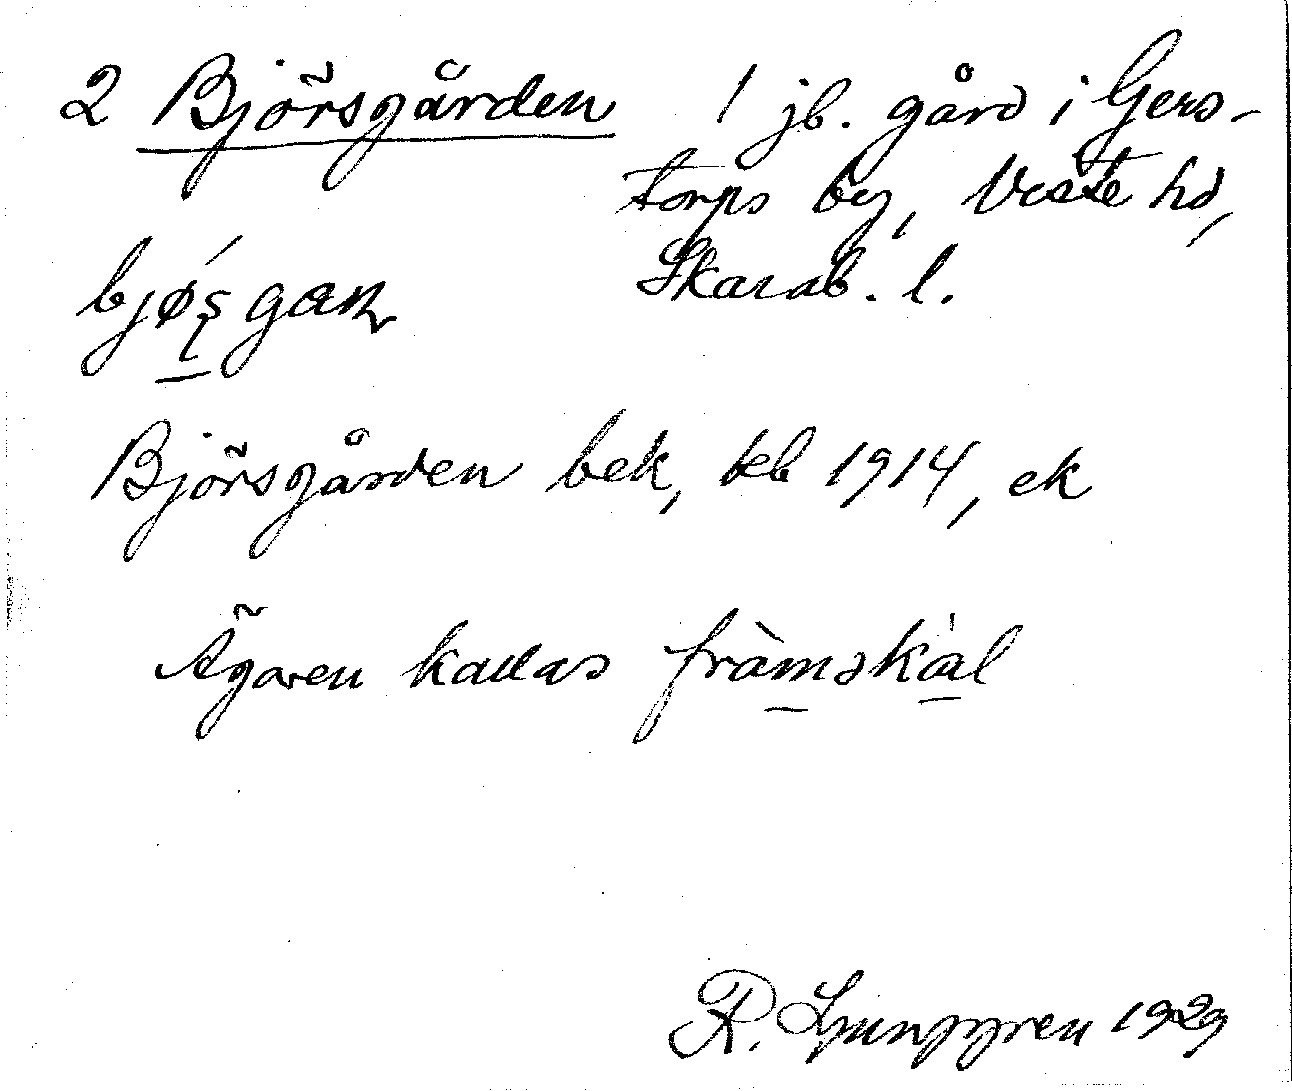 2 Björsgården 1 jb. gård i Gers-
torps by, Viste hd,
Skarab. l.
bjøʂgaɳ
Björsgården bek, teb 1914, ek
Ägaren kallas fràmskál
R. Ljunggren 1929